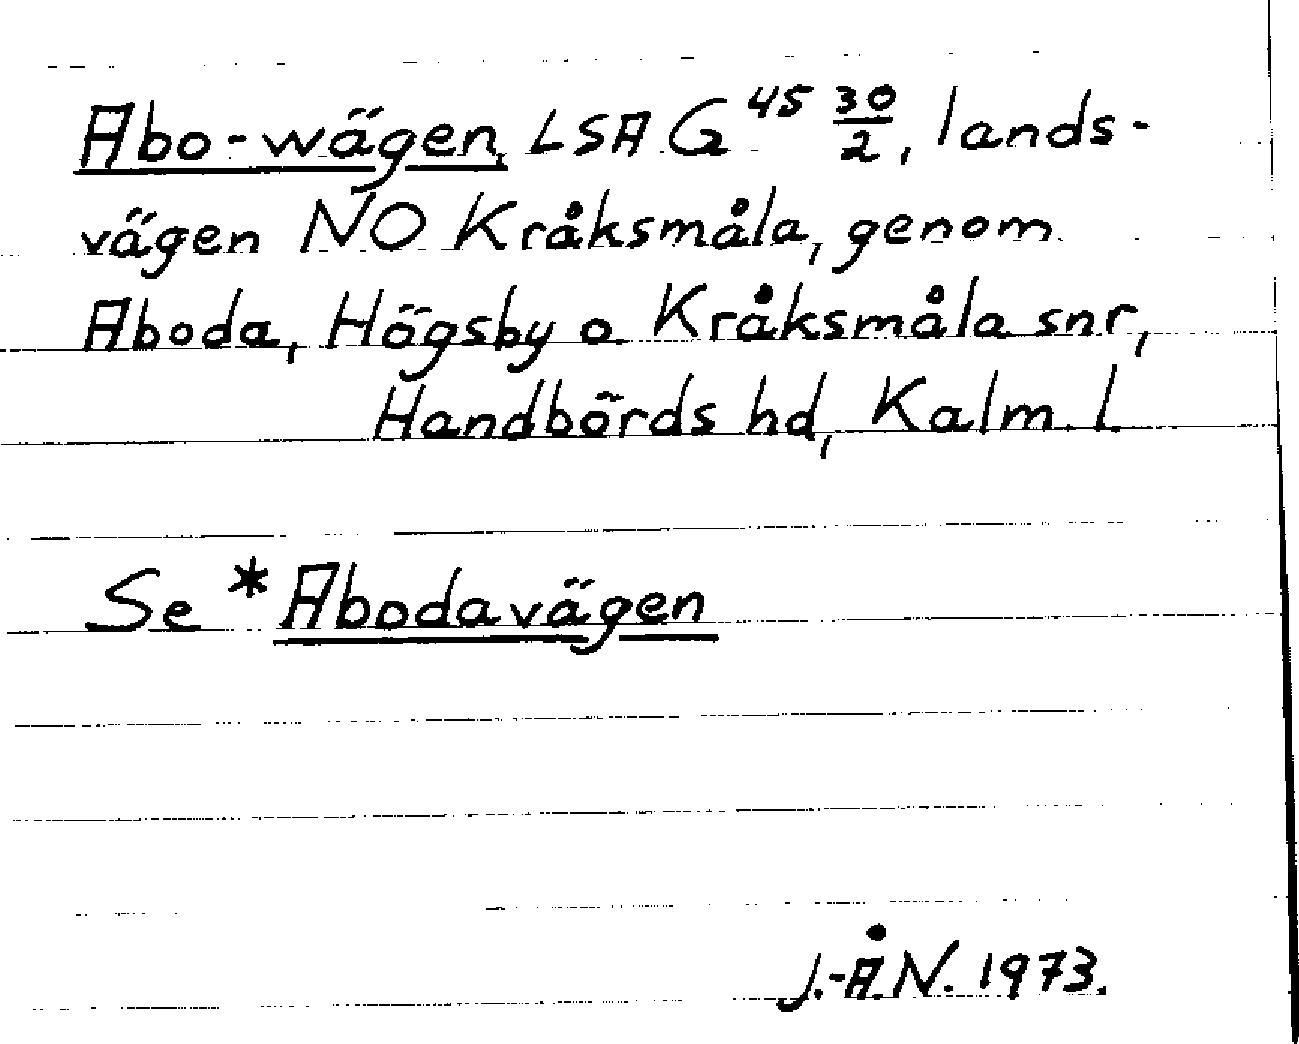 Abo-wägen, LSA G⁴⁵ 30/2, lands-
vägen NO Kråksmåla, genom
Aboda, Högsby o Kråksmåla snr,
Handbörds hd, Kalm. l.
Se *Abodavägen
J.-Å.N. 1973.